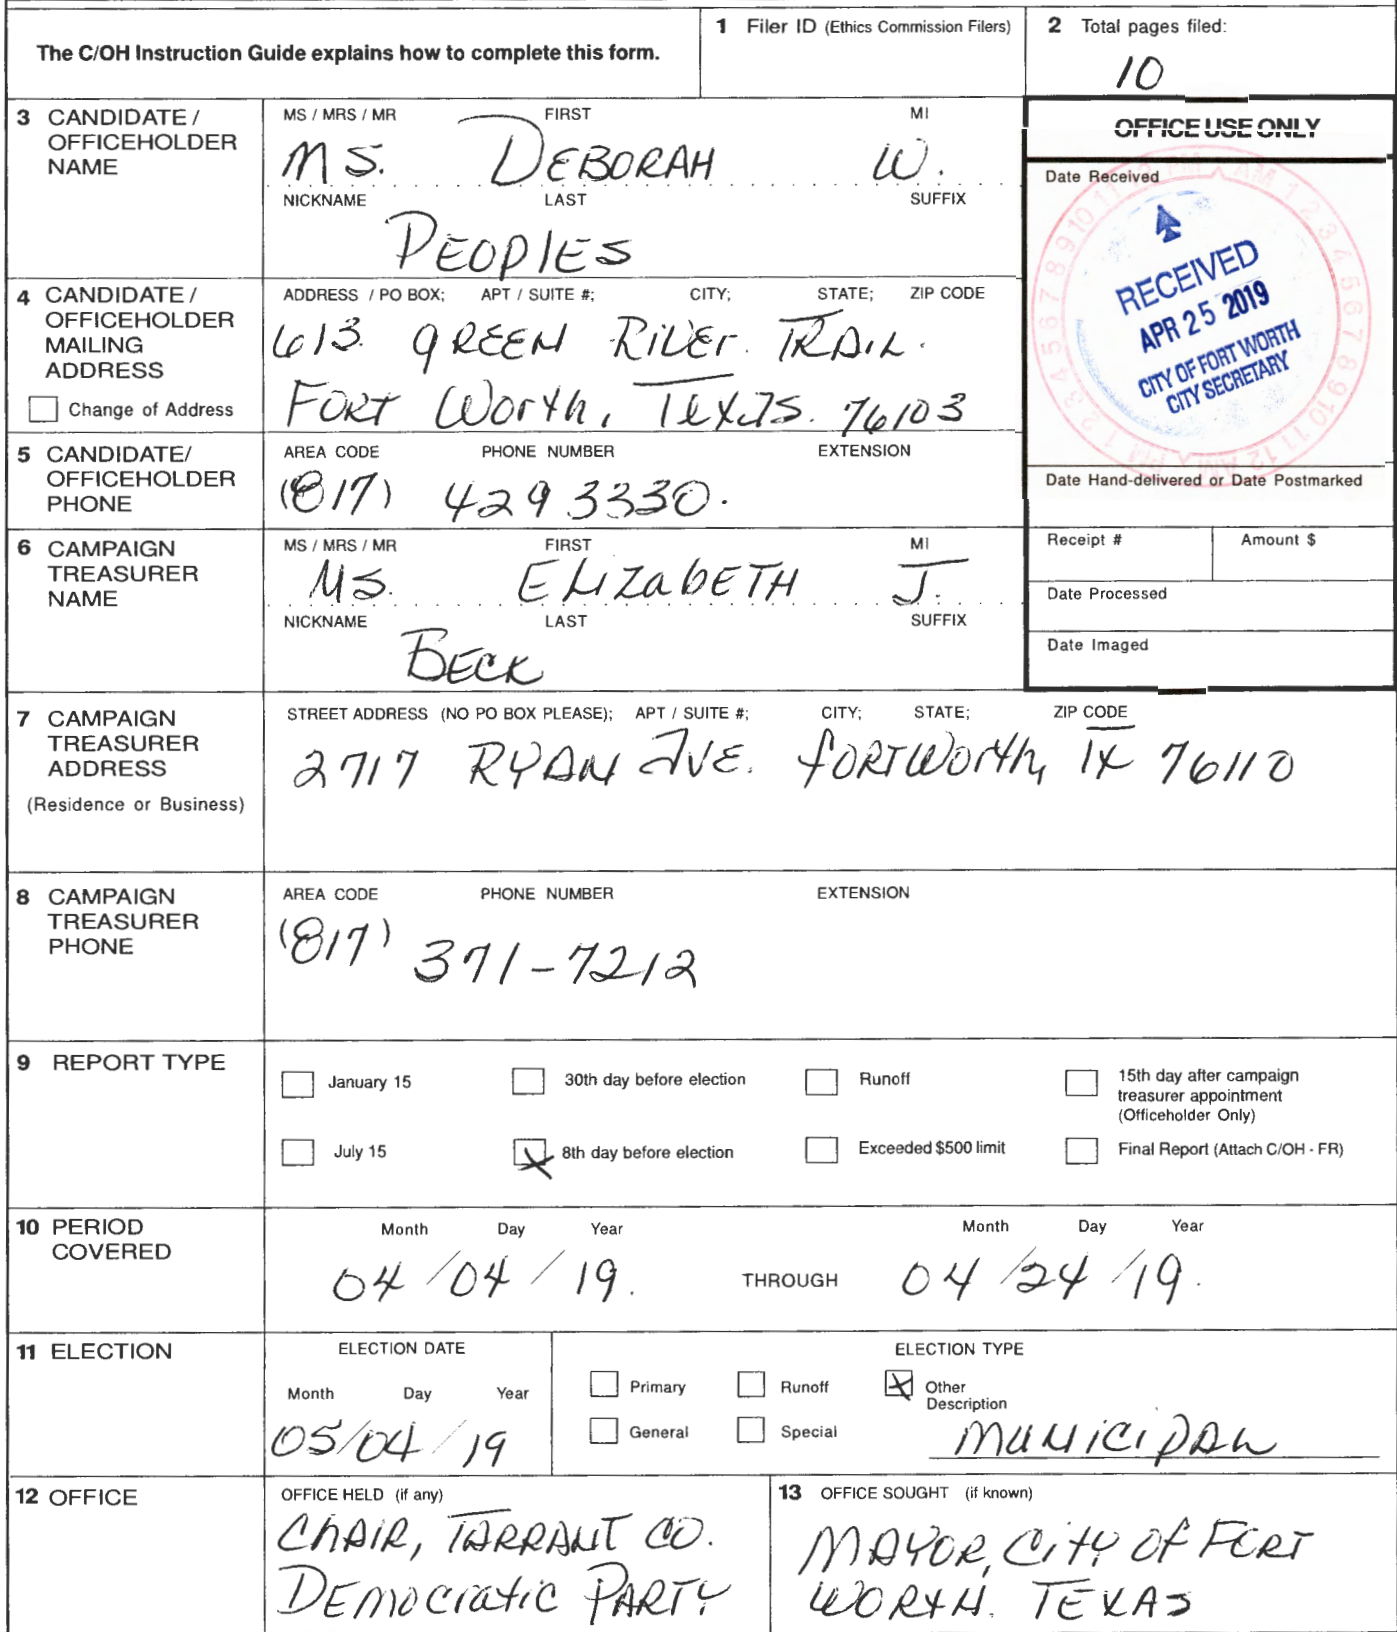 The C/OH Instruction Guide explains how to complete this form.
1 Filer ID (Ethics Commission Filers)
2 Total pages filed:
10
3 CANDIDATE / OFFICEHOLDER NAME
MS / MRS / MR FIRST MI
MS. DEBORAH W.
NICKNAME LAST SUFFIX
PEOPLES
OFFICE USE ONLY
Date Received
RECEIVED
APR 25 2019
CITY OF FORT WORTH
CITY SECRETARY
4 CANDIDATE / OFFICEHOLDER MAILING ADDRESS
Change of Address
ADDRESS / PO BOX; APT / SUITE #; CITY; STATE; ZIP CODE
613 GREEN RIVER TRAIL.
FORT Worth, TEXAS. 76103
5 CANDIDATE/ OFFICEHOLDER PHONE
AREA CODE PHONE NUMBER EXTENSION
(817) 429 3330.
Date Hand-delivered or Date Postmarked
6 CAMPAIGN TREASURER NAME
MS / MRS / MR FIRST MI
MS. ELIZABETH J.
NICKNAME LAST SUFFIX
BECK
Receipt # Amount $
Date Processed
Date Imaged
7 CAMPAIGN TREASURER ADDRESS
(Residence or Business)
STREET ADDRESS (NO PO BOX PLEASE); APT / SUITE #; CITY; STATE; ZIP CODE
2717 RYAN AVE. FORT WORTH, TX 76110
8 CAMPAIGN TREASURER PHONE
AREA CODE PHONE NUMBER EXTENSION
(817) 371-7212
9 REPORT TYPE
January 15 30th day before election Runoff 15th day after campaign treasurer appointment (Officeholder Only)
July 15 8th day before election Exceeded $500 limit Final Report (Attach C/OH - FR)
10 PERIOD COVERED
Month Day Year Month Day Year
04/04/19. THROUGH 04/24/19.
11 ELECTION
ELECTION DATE
Month Day Year
05/04/19
ELECTION TYPE
Primary Runoff Other Description
General Special MUNICIPAL
12 OFFICE
OFFICE HELD (if any)
CHAIR, TARRANT CO.
DEMOCRATIC PARTY
13 OFFICE SOUGHT (if known)
MAYOR, CITY OF FORT
WORTH. TEXAS